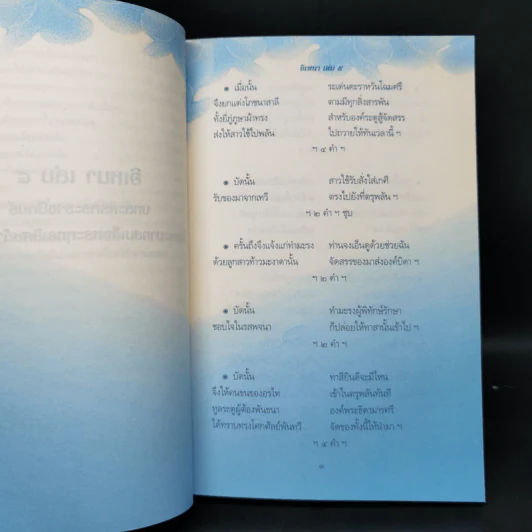 อิเหนา เล่ม ๕
๏ เมื่อนั้น ระเด่นดะราหวันโฉมศรี
จึงยกแต่งโภชนาสาลี ตามมีทุกสิ่งสารพัน
ทั้งยี่ภู่ภูษาผ้าทรง สำหรับองค์ระตูสู้จัดสรร
ส่งให้สาวใช้ไปพลัน ไปถวายให้ทันเวลานี้ ฯ
ฯ ๔ คำ ฯ
๏ บัดนั้น สาวใช้รับสั่งใส่เกศี
รับของมาจากเทวี ตรงไปยังที่ตรุพลัน ฯ
ฯ ๒ คำ ฯ ชุบ
๏ ครั้นถึงจึงแจ้งแก่ทำมะรง ท่านจงเอ็นดูด้วยช่วยฉัน
ด้วยลูกสาวท้าวมะงาดานั้น จัดสรรของมาส่งองค์บิดา ฯ
ฯ ๒ คำ ฯ
๏ บัดนั้น ทำมะรงผู้พิทักษ์รักษา
ชอบใจในรสพจนา ก็ปล่อยให้ทาสานั้นเข้าไป ฯ
ฯ ๒ คำ ฯ
๏ บัดนั้น ทาสียินดีจะมีไหน
จึงให้คนขนของ เข้าในตรุพลันทันที
ทูลระตูผู้ต้องพันธนา องค์พระธิดามารศรี
ได้ทราบทรงโศกศัลย์พันทวี จัดของทั้งนี้ให้นำมา ฯ
ฯ ๔ คำ ฯ